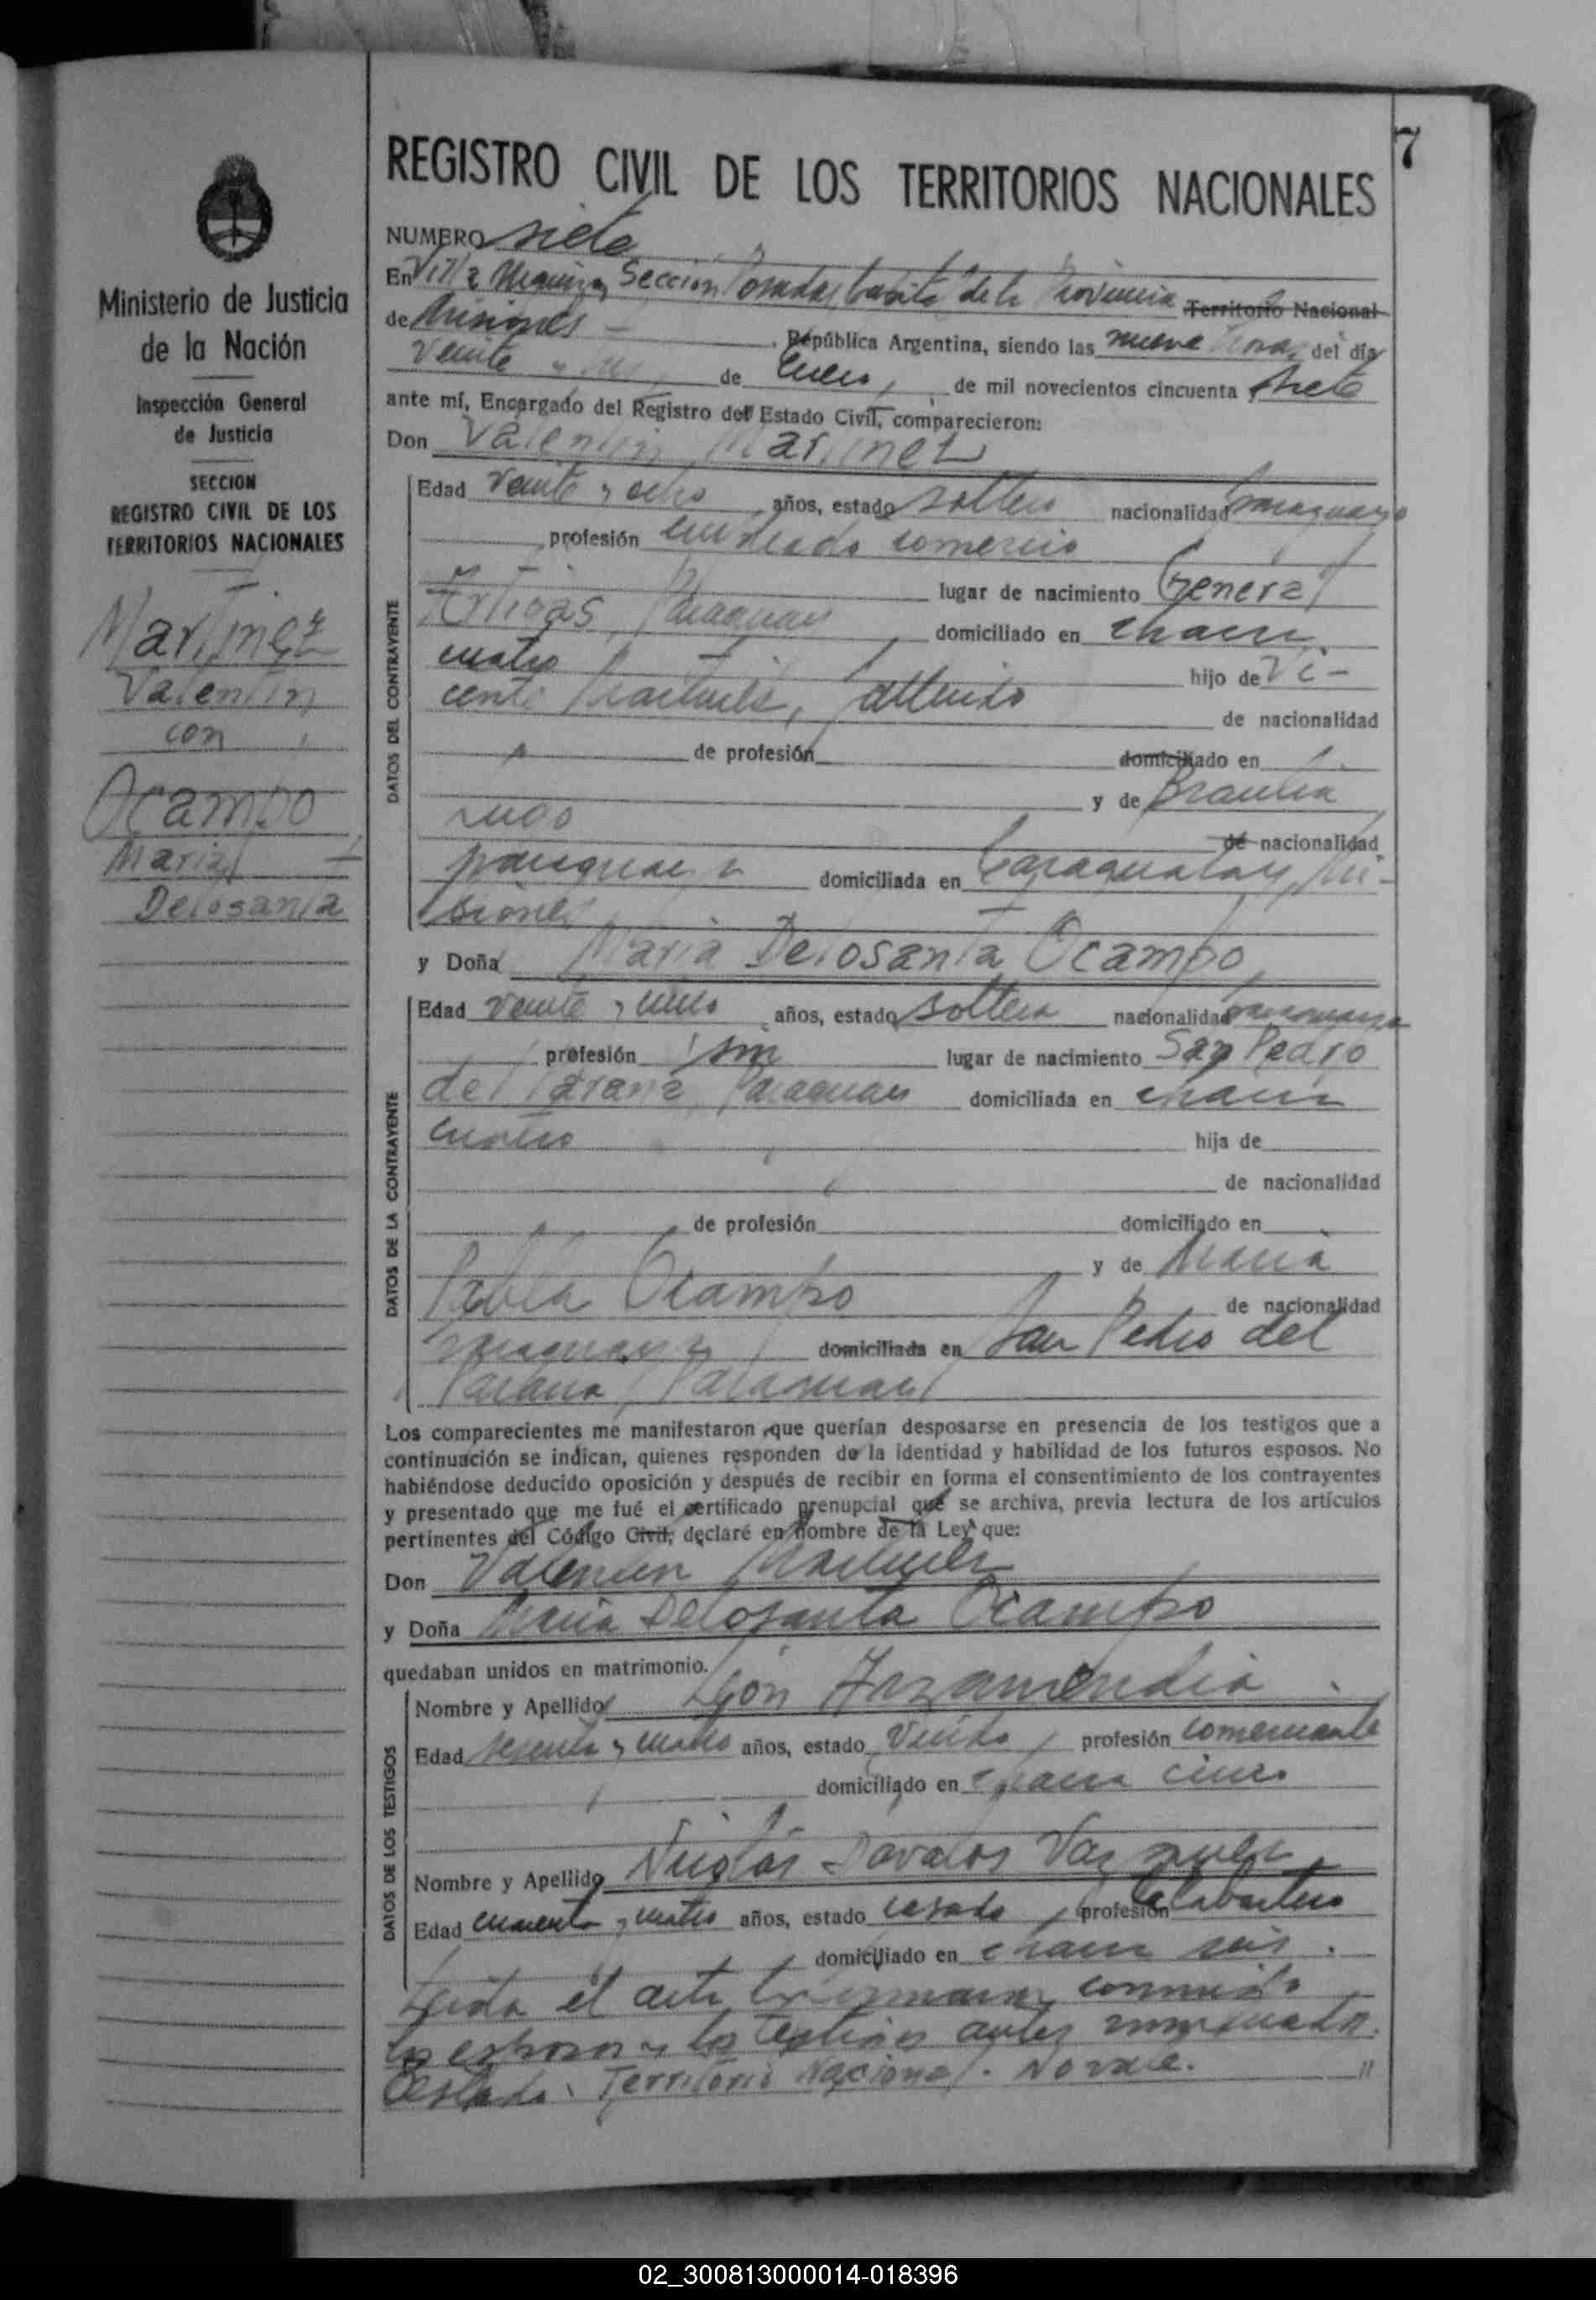 7
REGISTRO CIVIL DE LOS TERRITORIOS NACIONALES
Ministerio de Justicia
de la Nación
Inspección General
de Justicia
SECCION
REGISTRO CIVIL DE LOS
TERRITORIOS NACIONALES
Martinez
Valentin
con
Ocampo
Maria
Delosanta
NUMERO siete
En Villa Urquiza, Sección Posadas Capital de la Provincia Territorio Nacional
de Misiones República Argentina, siendo las nueve horas del día
veinte y de Enero, de mil novecientos cincuenta siete
ante mí, Encargado del Registro del Estado Civil, comparecieron:
Don Valentin Martinez
DATOS DEL CONTRAYENTE
Edad veinte y ocho años, estado soltero nacionalidad paraguaya
profesión empleado comercio
lugar de nacimiento General
Artigas, Paraguay domiciliado en chacra
cuatro hijo de Vi-
cente Martinez, de nacionalidad
de profesión domiciliado en
y de Braulia
de nacionalidad
paraguaya domiciliada en Caraguatay, Mi-
siones
y Doña Maria Delosanta Ocampo,
DATOS DE LA CONTRAYENTE
Edad veinte y años, estado soltera nacionalidad paraguaya
profesión sin lugar de nacimiento San Pedro
del Parana, Paraguay domiciliada en chacra
cuatro hija de
de nacionalidad
de profesión domiciliado en
y de Maria
Pabla Ocampo de nacionalidad
paraguaya domiciliada en San Pedro del
Parana, Paraguay
Los comparecientes me manifestaron que querían desposarse en presencia de los testigos que a
continuación se indican, quienes responden de la identidad y habilidad de los futuros esposos. No
habiéndose deducido oposición y después de recibir en forma el consentimiento de los contrayentes
y presentado que me fué el certificado prenupcial que se archiva, previa lectura de los artículos
pertinentes del Código Civil, declaré en nombre de la Ley que:
Don Valentin Martinez
y Doña Maria Delosanta Ocampo
quedaban unidos en matrimonio.
DATOS DE LOS TESTIGOS
Nombre y Apellido León Arzamendia
Edad sesenta y cuatro años, estado viudo, profesión comerciante
domiciliado en chacra cinco
Nombre y Apellido Nicolás Davalos Vazquez
Edad cuarenta y cuatro años, estado casado, profesión talabartero
domiciliado en chacra seis.
Leida el acta la firmaron conmigo
los esposos y los testigos antes nombrados.
Testado: Territorio Nacional. No vale. "
02_300813000014-018396